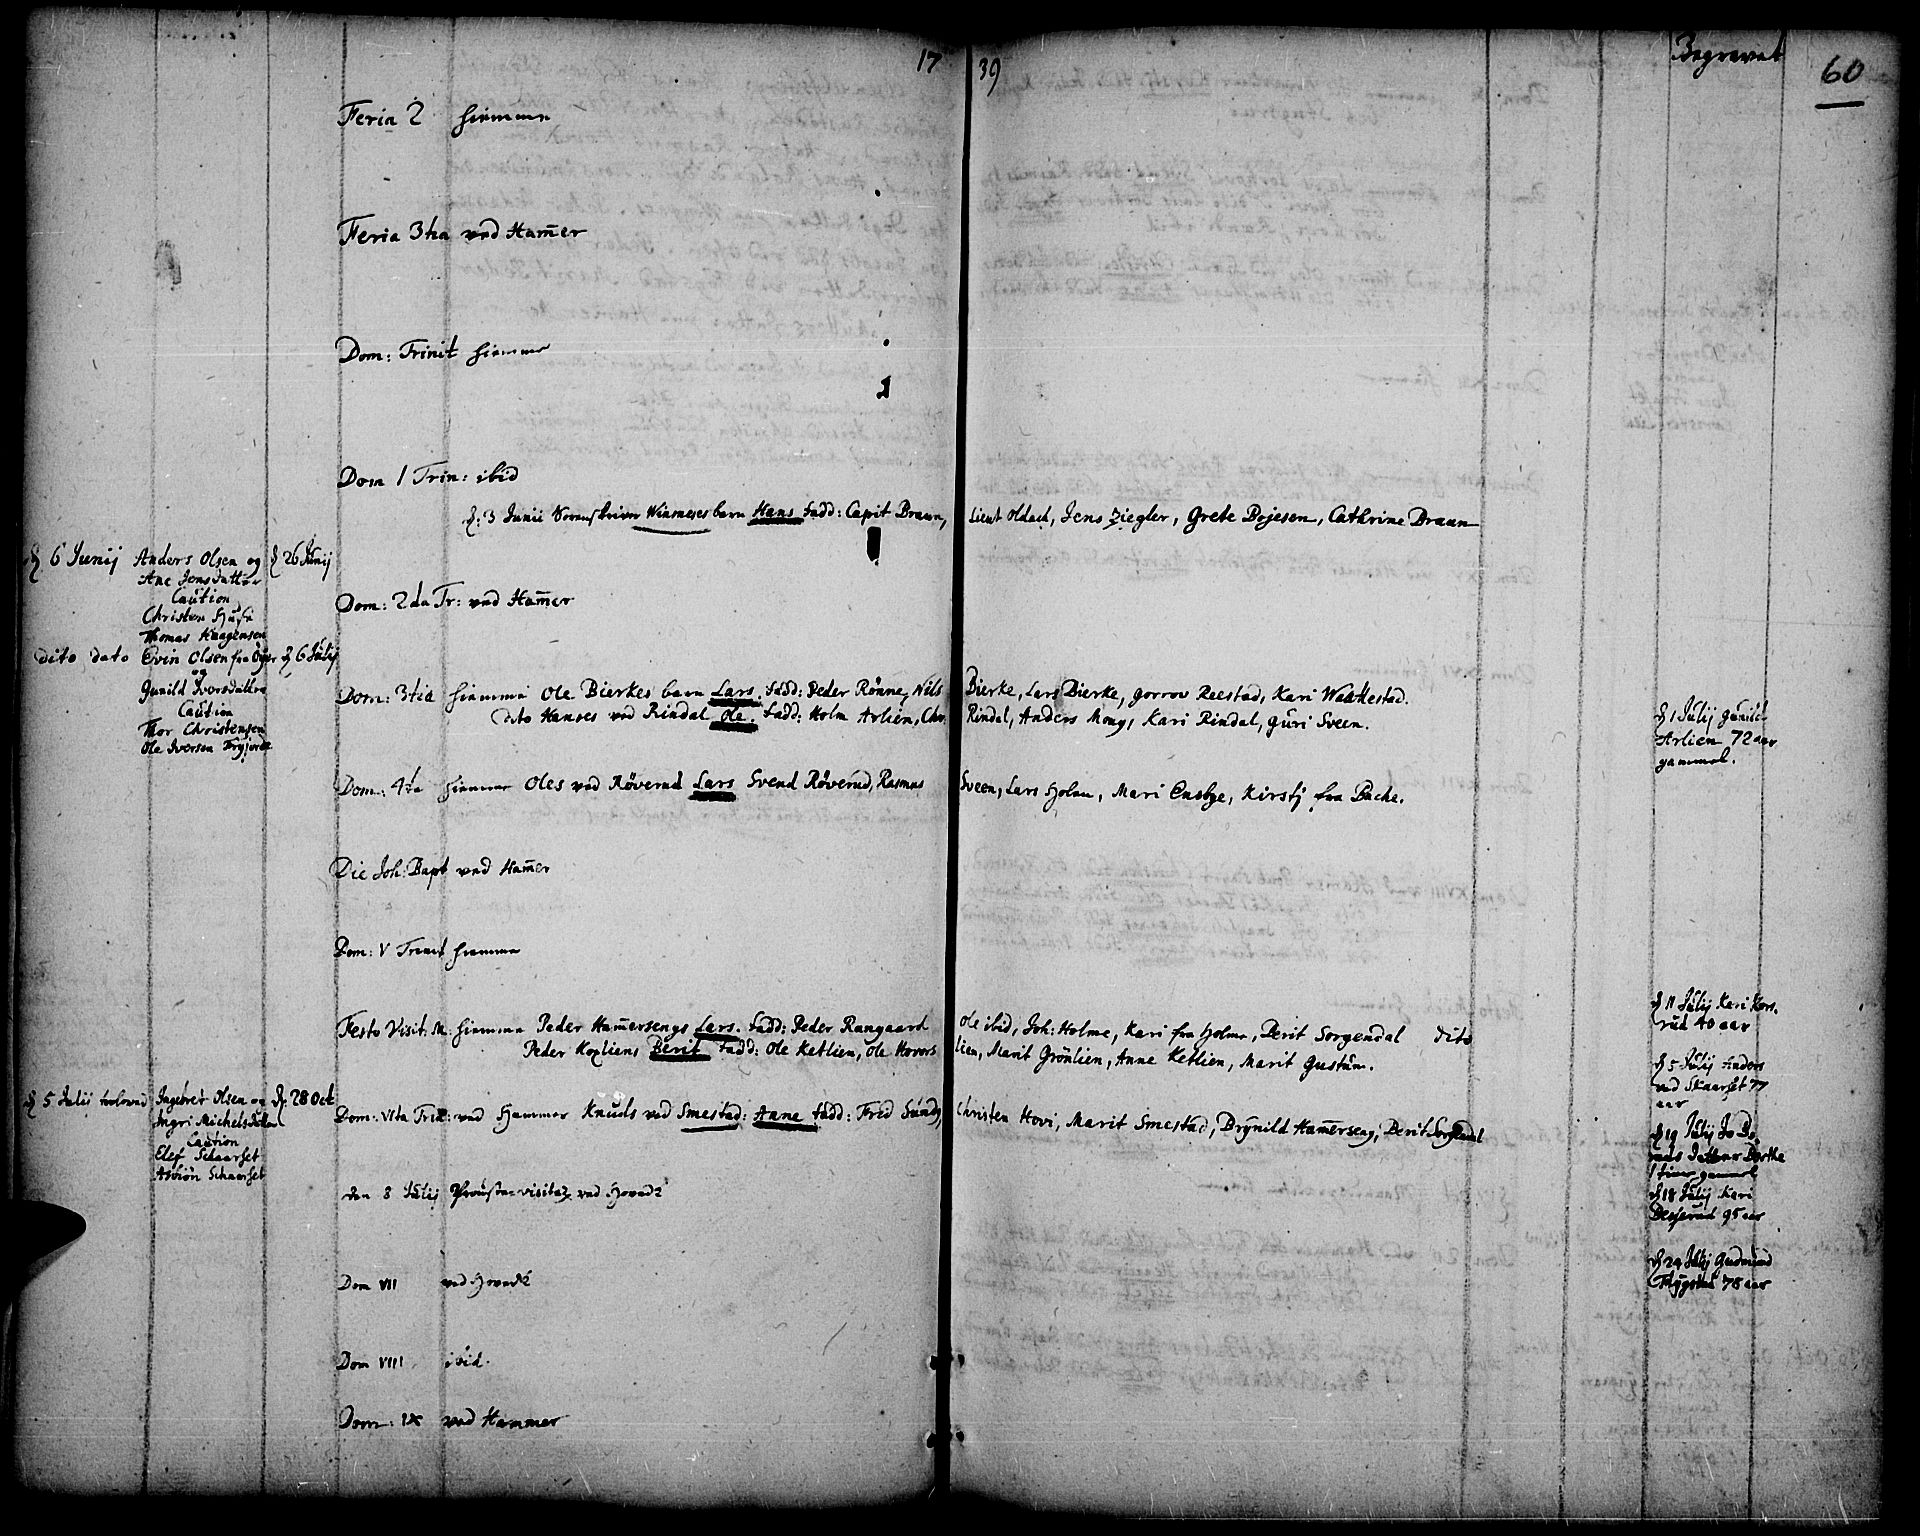 17 39
Begravet
60
Feria 2 hiemme
Feria 3tia ved Ham̄er
Dom: Trinit hiemme
Dom 1 Trin: ibid
d: 3 Junii Sorenskriver Winsneses barn Hans fadd: Capit Braun, Lieut Oldach, Jens Ziegler, Grete Bojesen, Cathrine Braun
d 6 Junij Anders Olsen og d 26 Junij
Ane Jensdatter
Caution
Christen Huse
Thomas Haagensen
dito dato Evin Olsen fra Øyer d 6 Julij
og
Gunild Iversdatter
Caution
Thor Christensen
Ole Iversen
Dom: 2da Tr: ved Ham̄er
Dom: 3tia hiemme Ole Bierkes barn Lars. fadd: Peder Rønne, Nils Bierke, Lars Bierke, gorrov Reestad, Kari
dito Hanses ved Rindal Ole. fadd: Holm Arlien, Chr. Rindal, Anders Moug, Kari Rindal, guri Sveen.
Dom: 4ta hiemme Oles ved Røverud Lars Svend Røverud, Rasmus Sveen, Lars Holen, Mari Ensbye, Kirstj fra Bache.
Die Joh: Bapt ved Ham̄er
Dom: V Trinit hiemme
Festo Visit: M: hiemme Peder Ham̄ersengs Lars. fadd: Peder Rangaard Ole ibid, Joh: Holme, Kari fra Holme, Berit Sorgendal dito
Peder Kopliens Berit fadd: Ole Ketlien, Ole Hovorslien, Marit Grönlien, Anne Ketlien, Marit Gustum.
d 5 Julij trolovud Ingebret Olsen og d. 28 Oct
Ingri Michelsdatter
Caution
Elef Schaarset
Asbiön Schaarset
Dom: VIta Trin: ved Hammer Knuds ved Smestad: Anne fadd: Fred Sundj, Christen Hovi, Marit Smestad, Brynild Ham̄erseng, Berit Sorgendal
den 8 Julij Prouste-visitaz ved Hoved K
Dom VII ved Hoved K
Dom VIII ibid.
Dom: IX ved Hammer
d 1 Julij gunild
Arlien 72 aar
gammel.
d 11 Julij Kari Kors-
rud 40 aar
d 5 Julij Anders
ved Skaarset 77
aar
d 19 Julij
1 time gammel
d 18 Julij Kari
95 aar
d 24 Julij Gudmund
78 aar